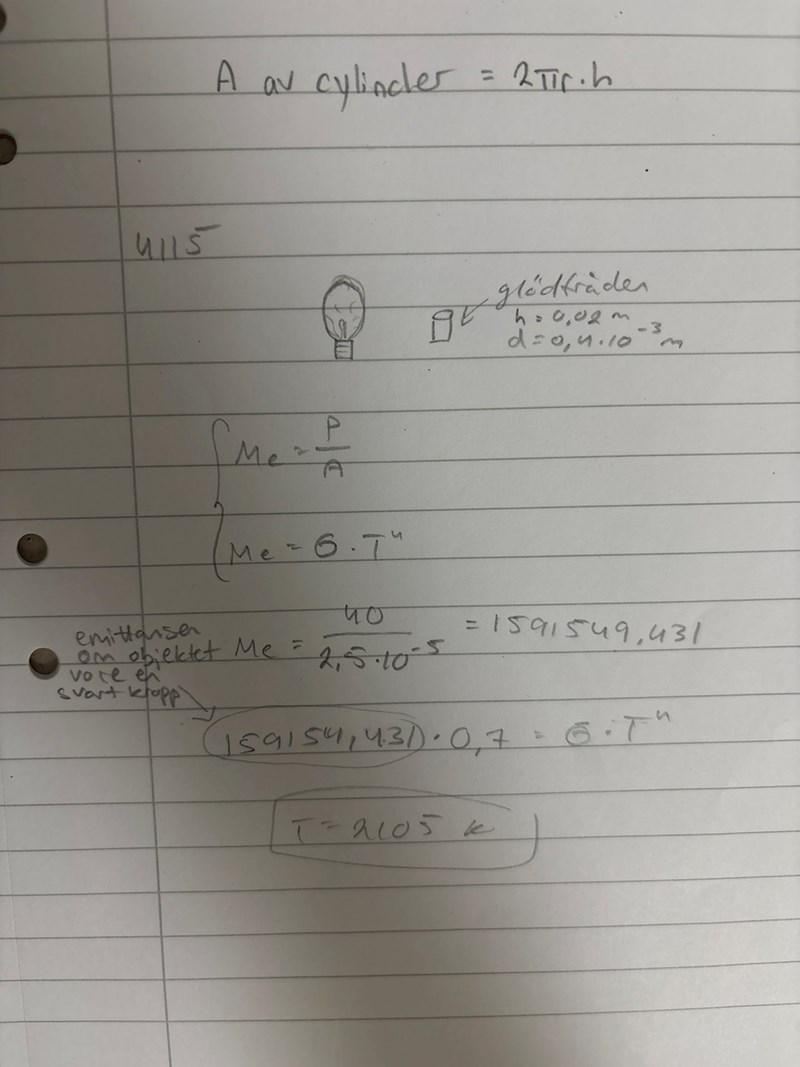 A av cylinder = 2πr·h
4115
glödtråden
h = 0,02 m
d = 0,4·10⁻³ m
Me = P/A
Me = σ·T⁴
emittansen
om objektet
vore en
svart kropp
Me = 40/2,5·10⁻⁵ = 1591549,431
(159154,431)·0,7 = σ·T⁴
T = 2105 K